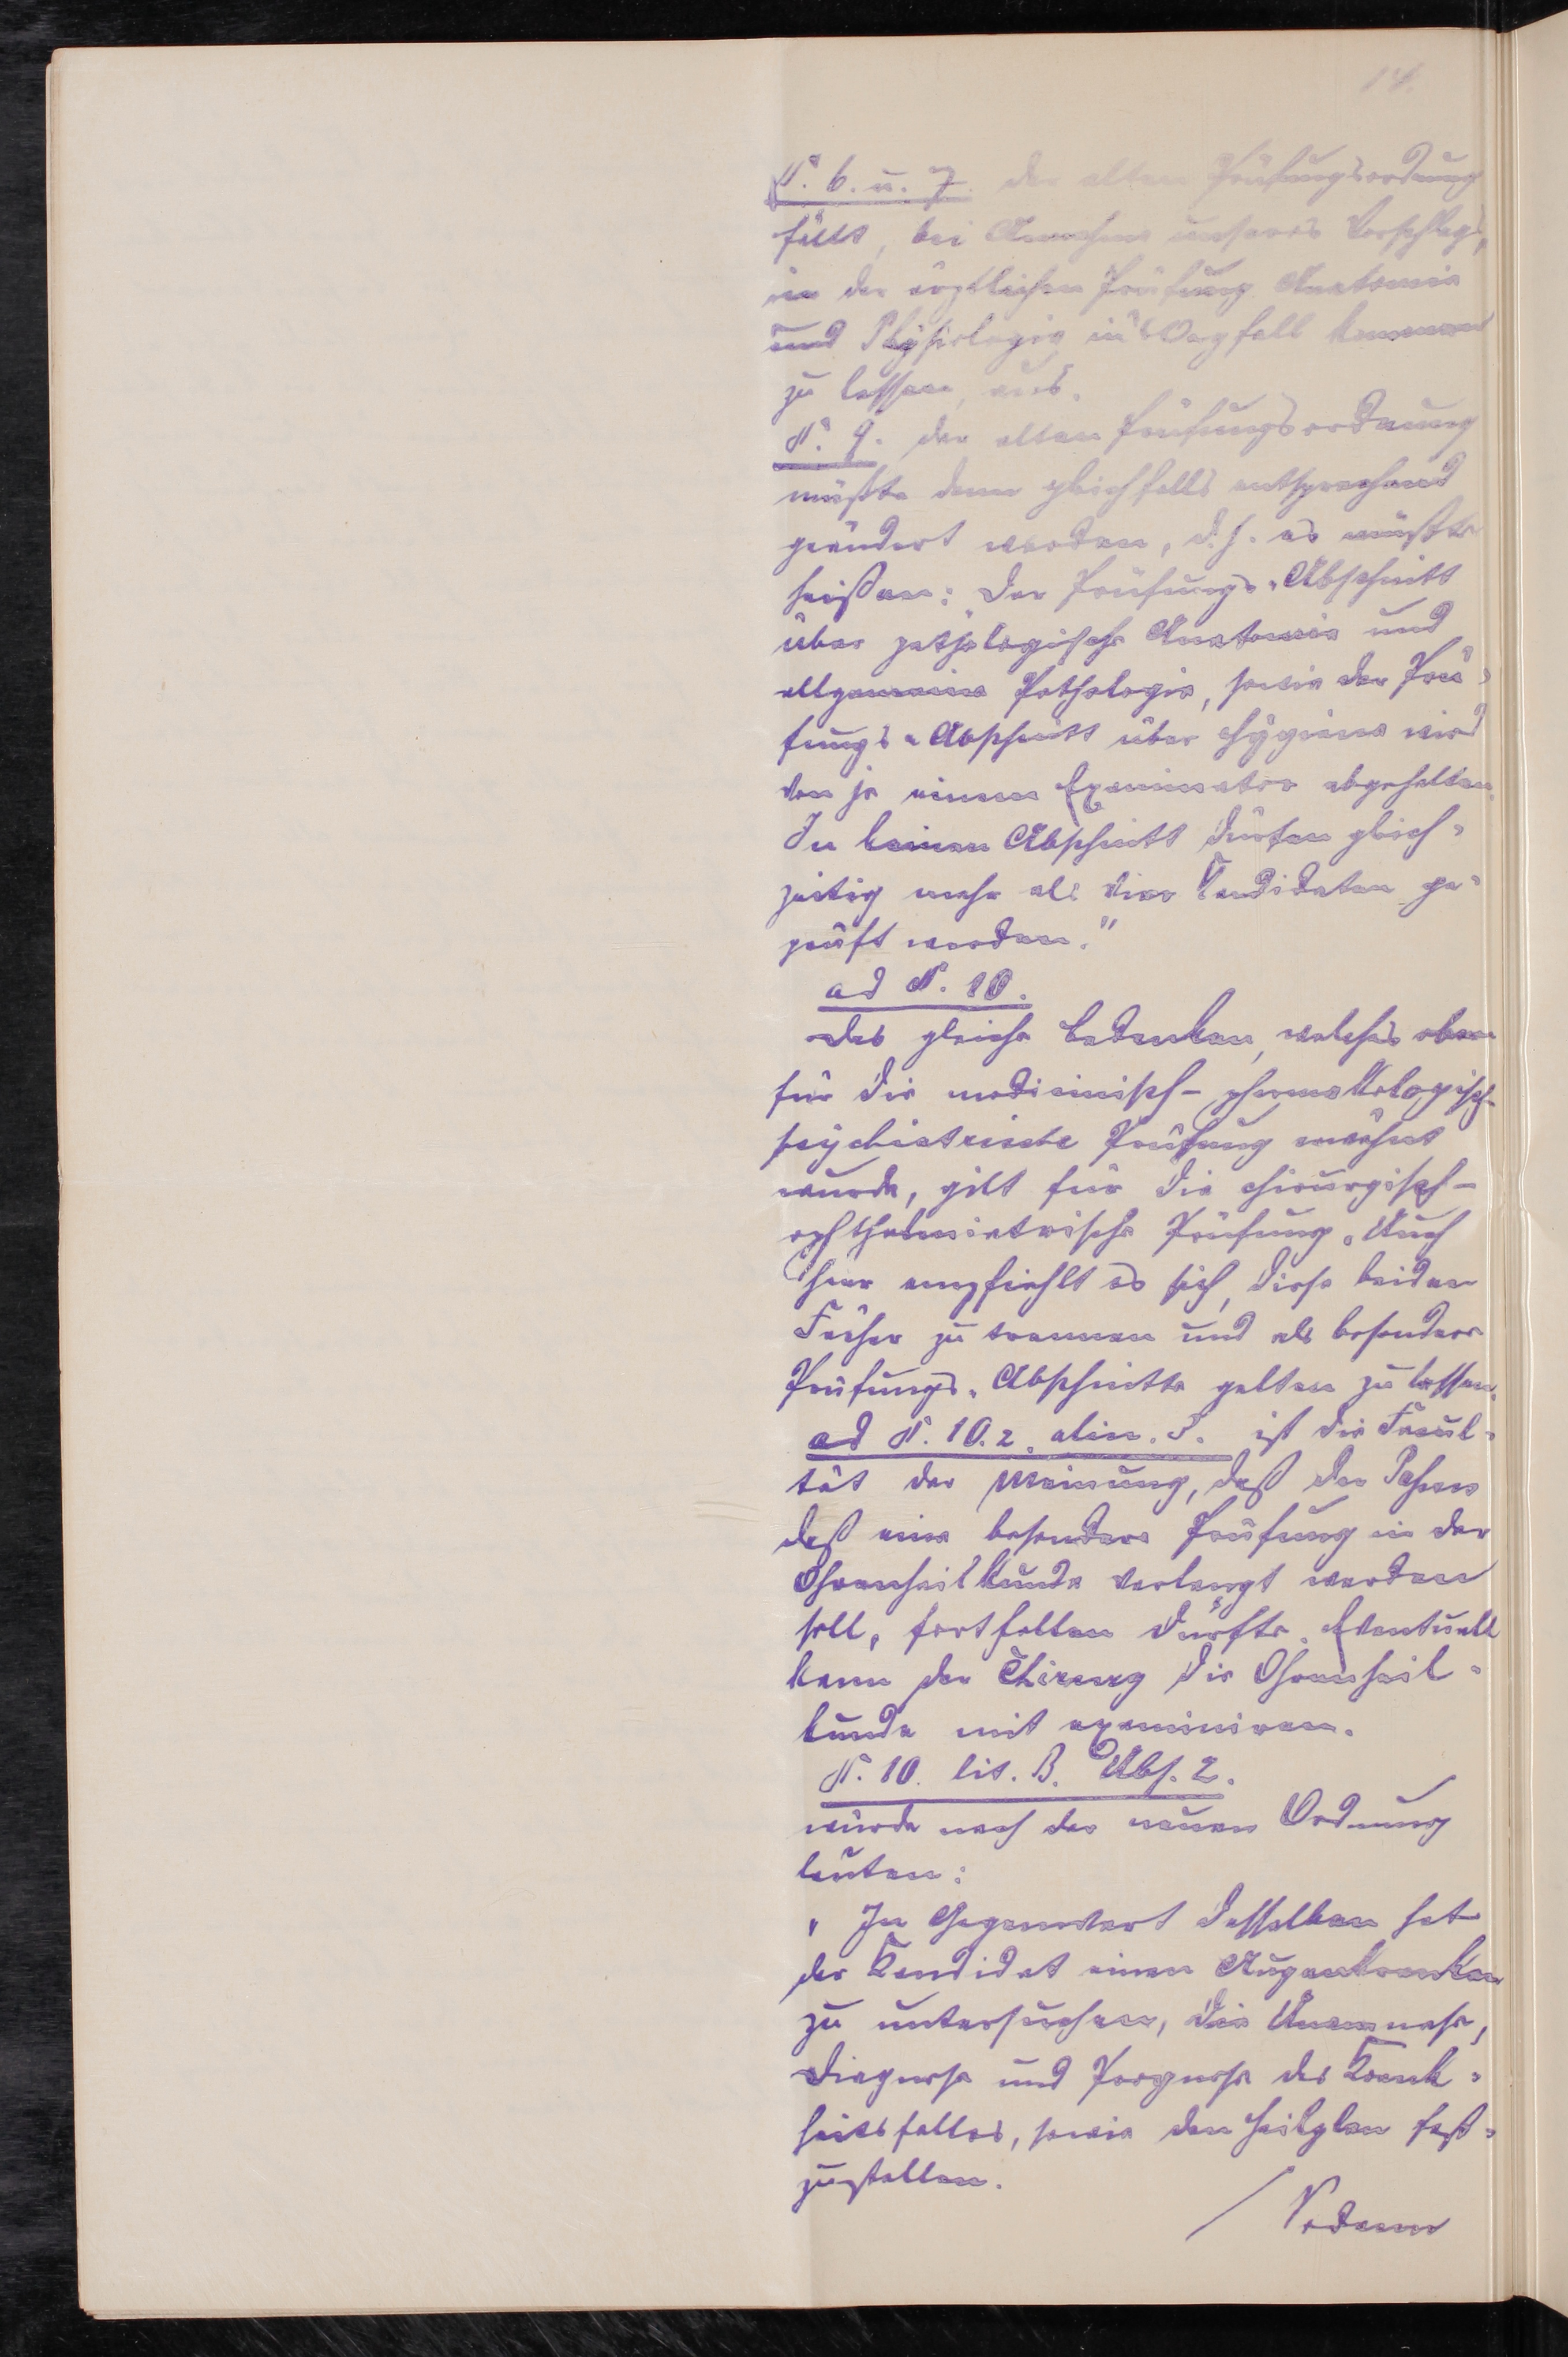 14.
§. 6. u. 7. der alten Prüfungsordnung
fällt, bei Annahme unseres Vorschlags,
in der ärztlichen Prüfung Anatomie
und Physiologie in Wegfall kommen
zu lassen, aus.
§. 9. der alten Prüfungsordnung
müßte dann gleichfalls entsprechend
geändert werden, d. h. es müßte
heißen: Der Prüfungs-Abschnitt
über pathologische Anatomie und
allgemeine Pathologie, sowie der Prü-
fungs-Abschnitt über Hygiene wird
von je einem Examinator abgehalten.
In keinem Abschnitt dürfen gleich-
zeitig mehr als vier Kandidaten ge-
prüft werden."
ad §. 10.
Das gleiche Bedenken, welches oben
für die medicinisch-pharmakologisch-
psychiatrische Prüfung erwähnt
wurde, gilt für die chirurgisch-
ophthalmiatrische Prüfung. Auch
hier empfiehlt es sich, diese beiden
Fächer zu trennen und als besondere
Prüfungs-Abschnitte gelten zu lassen.
ad §. 10.2. alin. 5. ist die Facul-
tät der Meinung, daß der Passus
daß eine besondere Prüfung in der
Ohrenheilkunde verlangt werden
soll, fortfallen dürfte. Eventuell
kann der Chirurg die Ohrenheil-
kunde mit examiniren.
§. 10. lit. B. Abs. 2.
würde nach der neuen Ordnung
lauten:
„In Gegenwart desselben hat
der Kandidat einen Augenkranken
zu untersuchen, die Anamnese,
Diagnose und Prognose des Krank-
heitsfalles, sowie den Heilplan fest-
zustellen.
/ Sodann